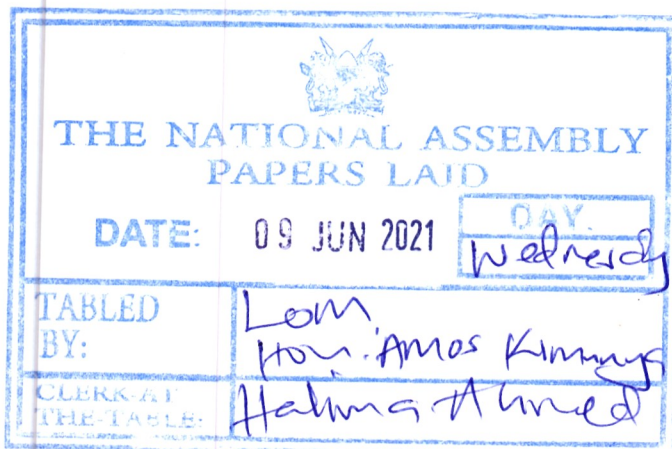 THE NATIONAL ASSEMBLY
PAPERS LAID
DATE: 09 JUN 2021
DAY.
Wednesday
TABLED BY:
LOM,
Hon. Amos Kimunya
CLERK-AT THE-TABLE:
Halima Ahmed